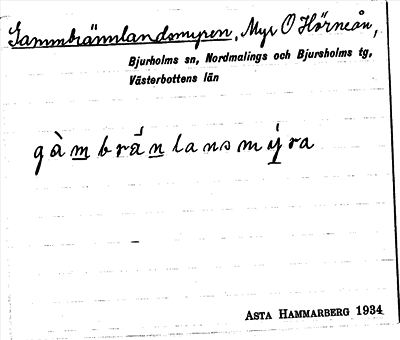 Gammbrännlandsmyren, Myr O Hörneån,
Bjurholms sn, Nordmalings och Bjurholms tg,
Västerbottens län
gàmbránlansmýra
ASTA HAMMARBERG 1934